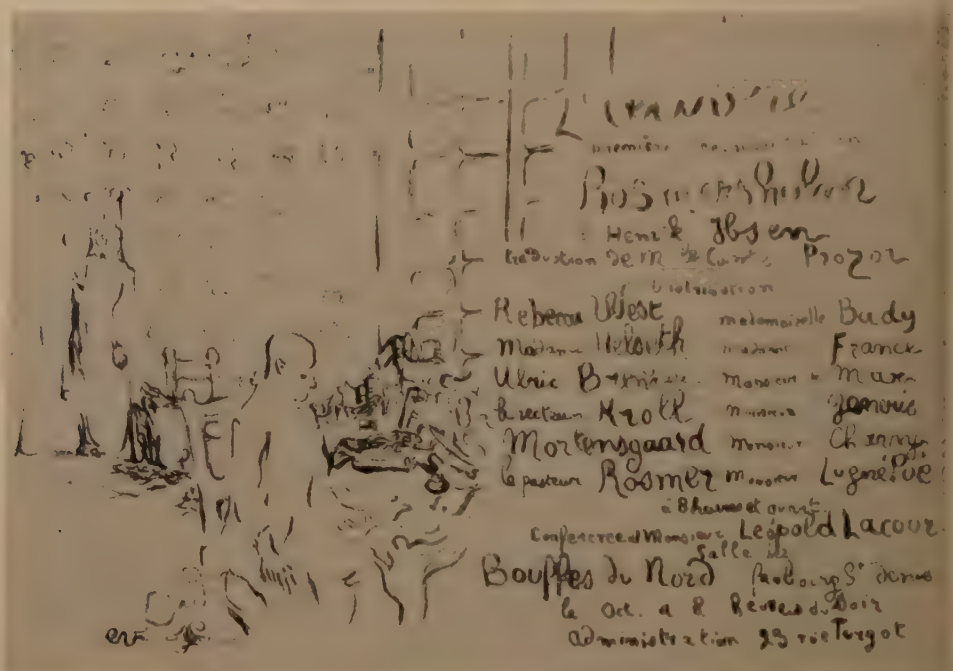 première
Rosmersholm
Henrik Ibsen
traduction de M le Comte Prozor
Distribution
Rebecca West mademoiselle Bady
Madame Helseth madame Franck
Ulric monsieur de Max
le recteur Kroll monsieur
Mortensgaard monsieur Charny
le pasteur Rosmer monsieur Lugné Poë
à 8 heures et avant
Conférence de Monsieur Léopold Lacour
Salle des
Bouffes du Nord faubourg St Denis
le Oct. a 8 heures du Soir
administration 23 rue Turgot
ev